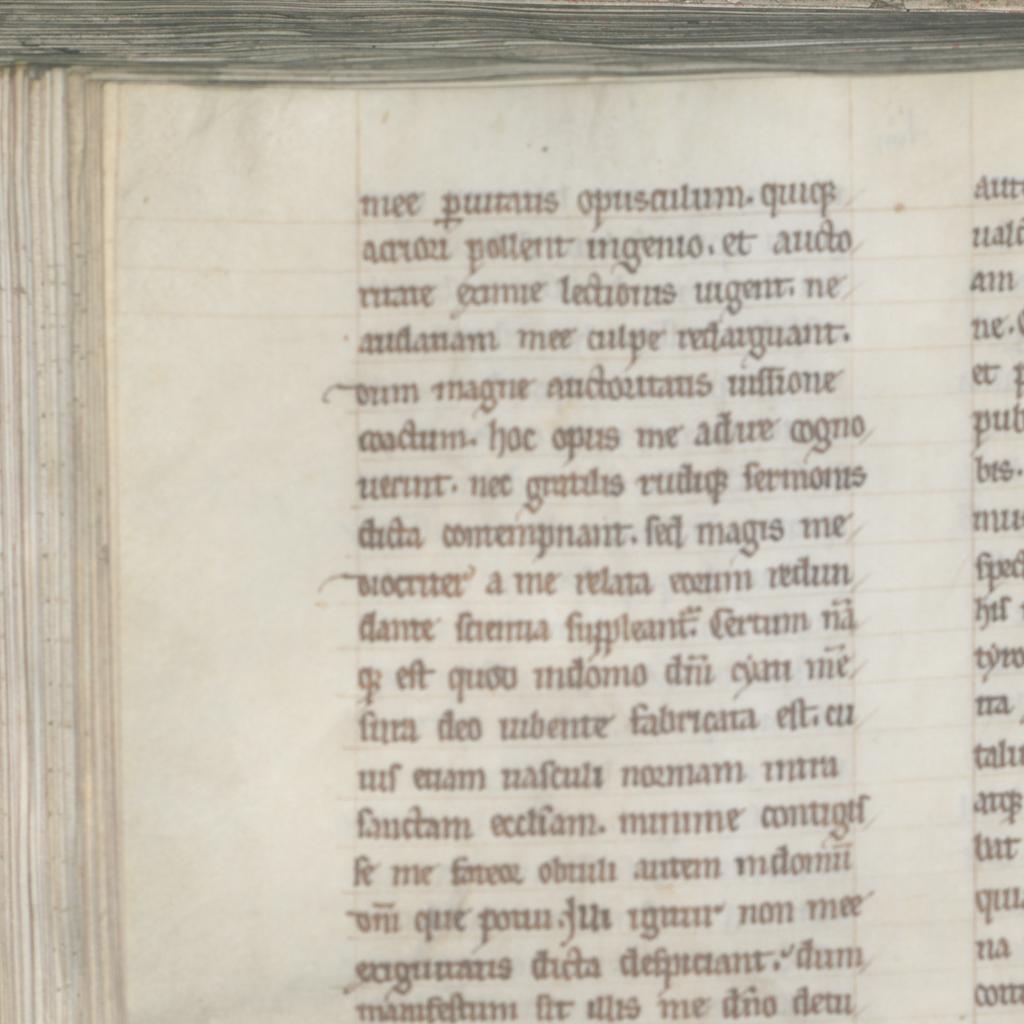 mee ꝑuitatis opusculum. quiqꝫ
acriori pollent ingenio. et aucto
ritate eximie lectionis uigent. ne
audatiam mee culpe redarguant.
dum magne auctoritatis iussione
coactum. hoc opus me adire cogno
uerint. nec gratilis rudiqꝫ sermonis
dicta contempnant. sed magis me
diocriter a me relata eorum redun
dante scientia suppleant. Certum nā
qꝫ est quod indomo dn̄i cum me
sura deo iubente fabricata est. cu
ius etiam uasculi normam intra
sanctam ecclsiam. minime contigis
se me fateor obtuli autem indomū
dn̄i que potui. Illi igitur non mee
exiguitatis dicta despiciant. dum
manifestum sit illis me dn̄o detu
aut
am
ne.
et p
bis.
mus
spec
his
tyro
na
atqꝫ
qui
na